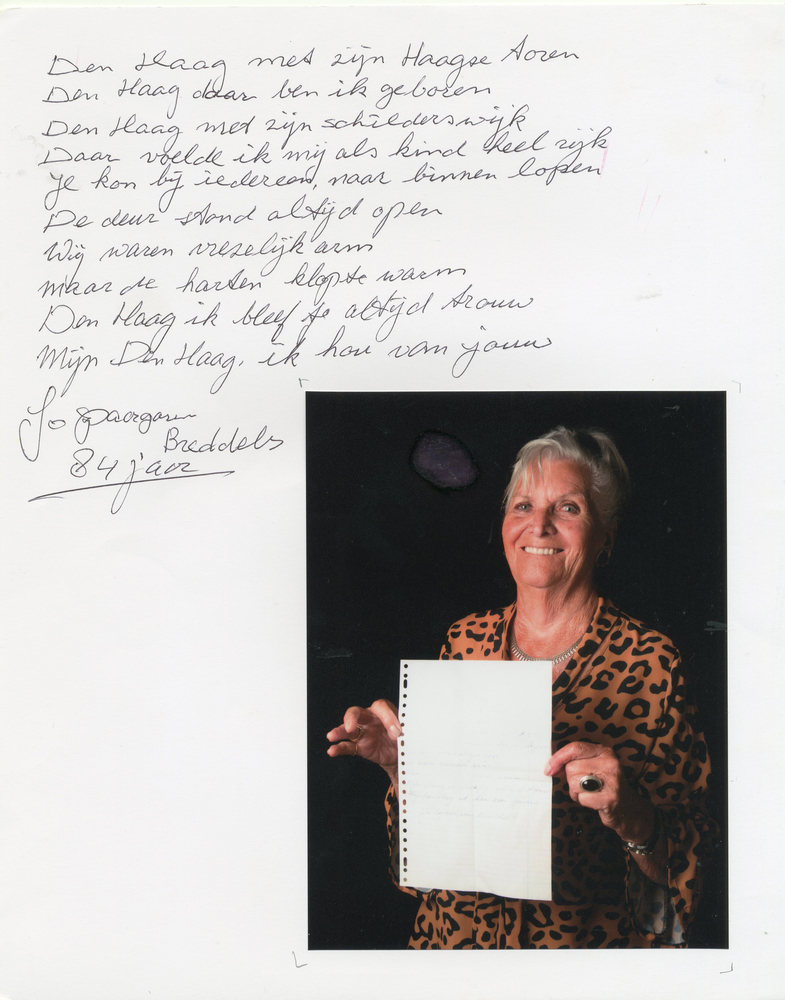 Den Haag met zijn Haagse toren
Den Haag daar ben ik geboren
Den Haag met zijn schilderswijk
Daar voelde ik mij als kind heel rijk
Je kon bij iedereen, naar binnen lopen
De deur stond altijd open
Wij waren vreselijk arm
maar de harten klopte warm
Den Haag ik bleef je altijd trouw
Mijn Den Haag, ik hou van jouw
Jo Spaargaren
Breddels
84 jaar